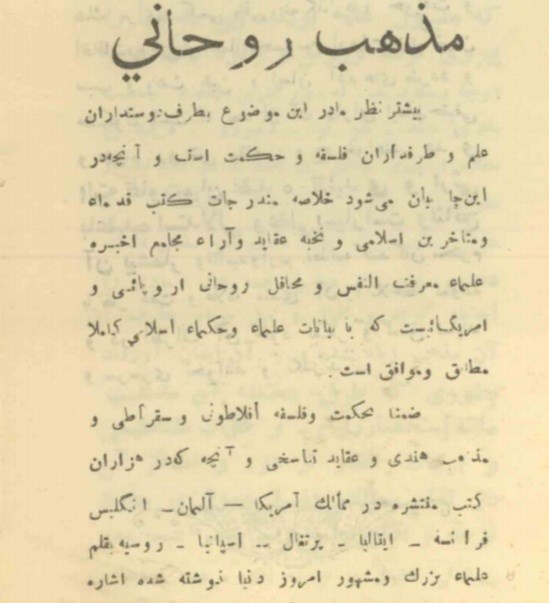 مذهب روحاني
بیشتر نظر مادر این موضوع بطرف دوستداران
علم و طرفداران فلسفه و حکمت است و آنچه در
این جا بیان می‌شود خلاصه مندرجات کتب قدماء
ومتاخرین اسلامی و نخبه عقاید وآراء مجامع اخیره
علماء معرفت النفس و محافل روحانی اروپائی و
امریکائیست که با بیانات علماء وحکماء اسلامی کاملا
مطابق وموافق است .
ضمنا بحکمت وفلسفه أفلاطونی و سقراطی و
مذهب هندی و عقاید تناسخی و آنچه که در هزاران
کتب منتشره در ممالک آمریکا — آلمان ـ انگلیس
فرانسه ـ ایتالیا ـ پرتغال ـ اسپانیا ـ روسیه بقلم
علماء بزرك ومشهور امروز دنیا نوشته شده اشاره